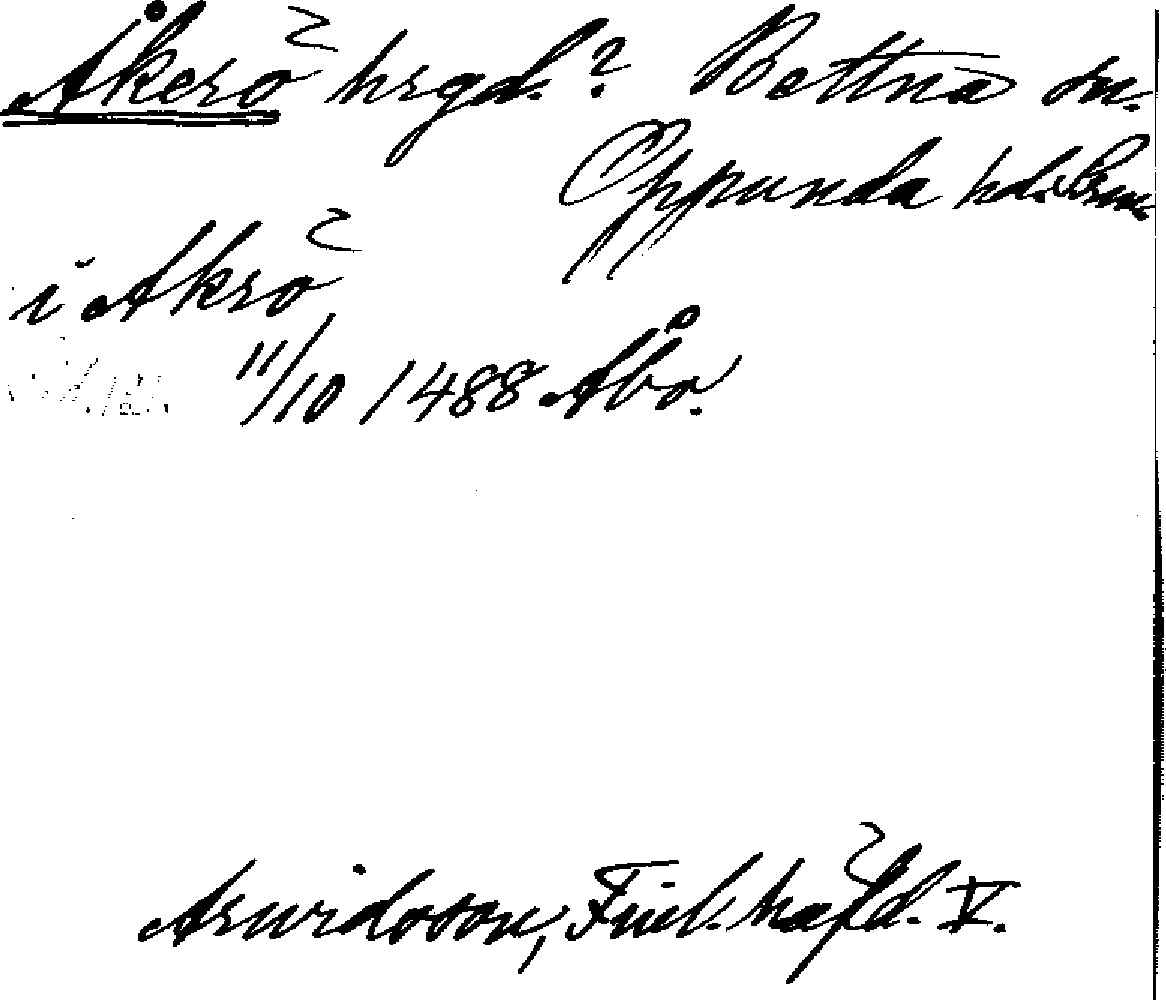 Åkerö hrgd.? Bettna sn.
Oppunda hd. Srm.
i Akrö
11/10 1488 Åbo.
Arwidsson, Finl. häfd. V.